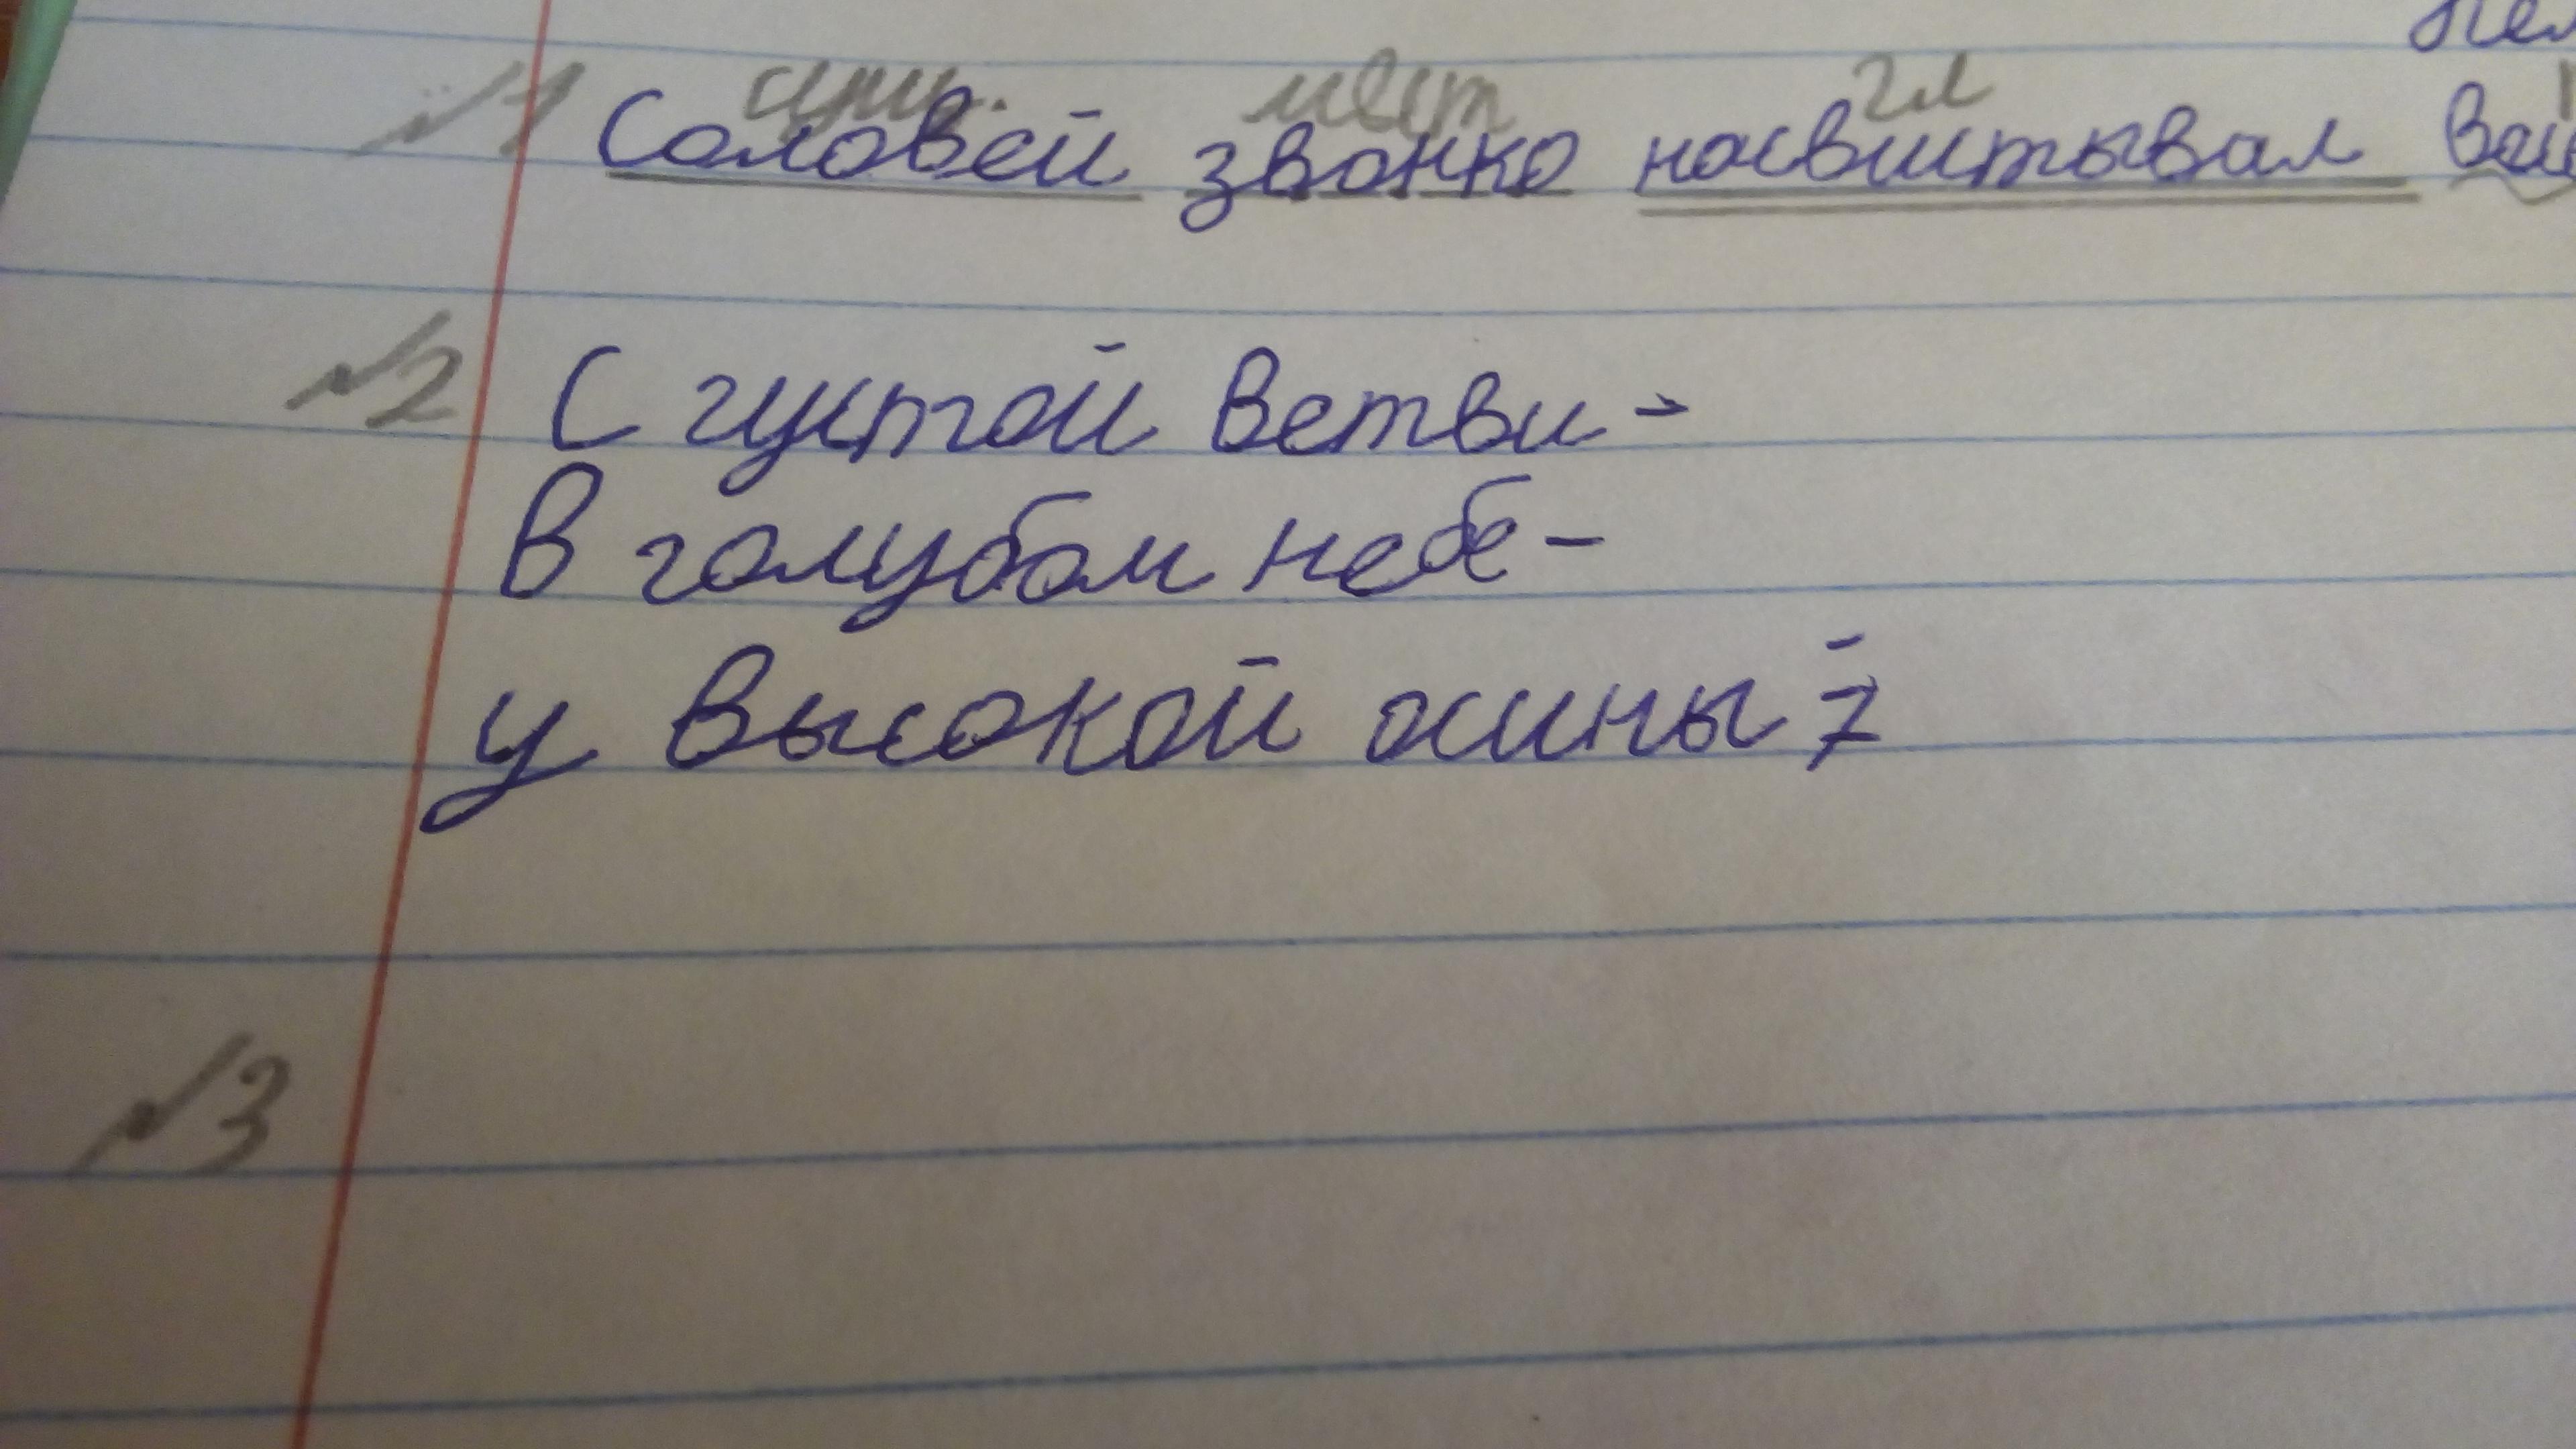 сущ. мест гл
№1 Соловей звонко насвистывал
№2 С густой ветви -
В голубом небе -
у высокой осины -
№3